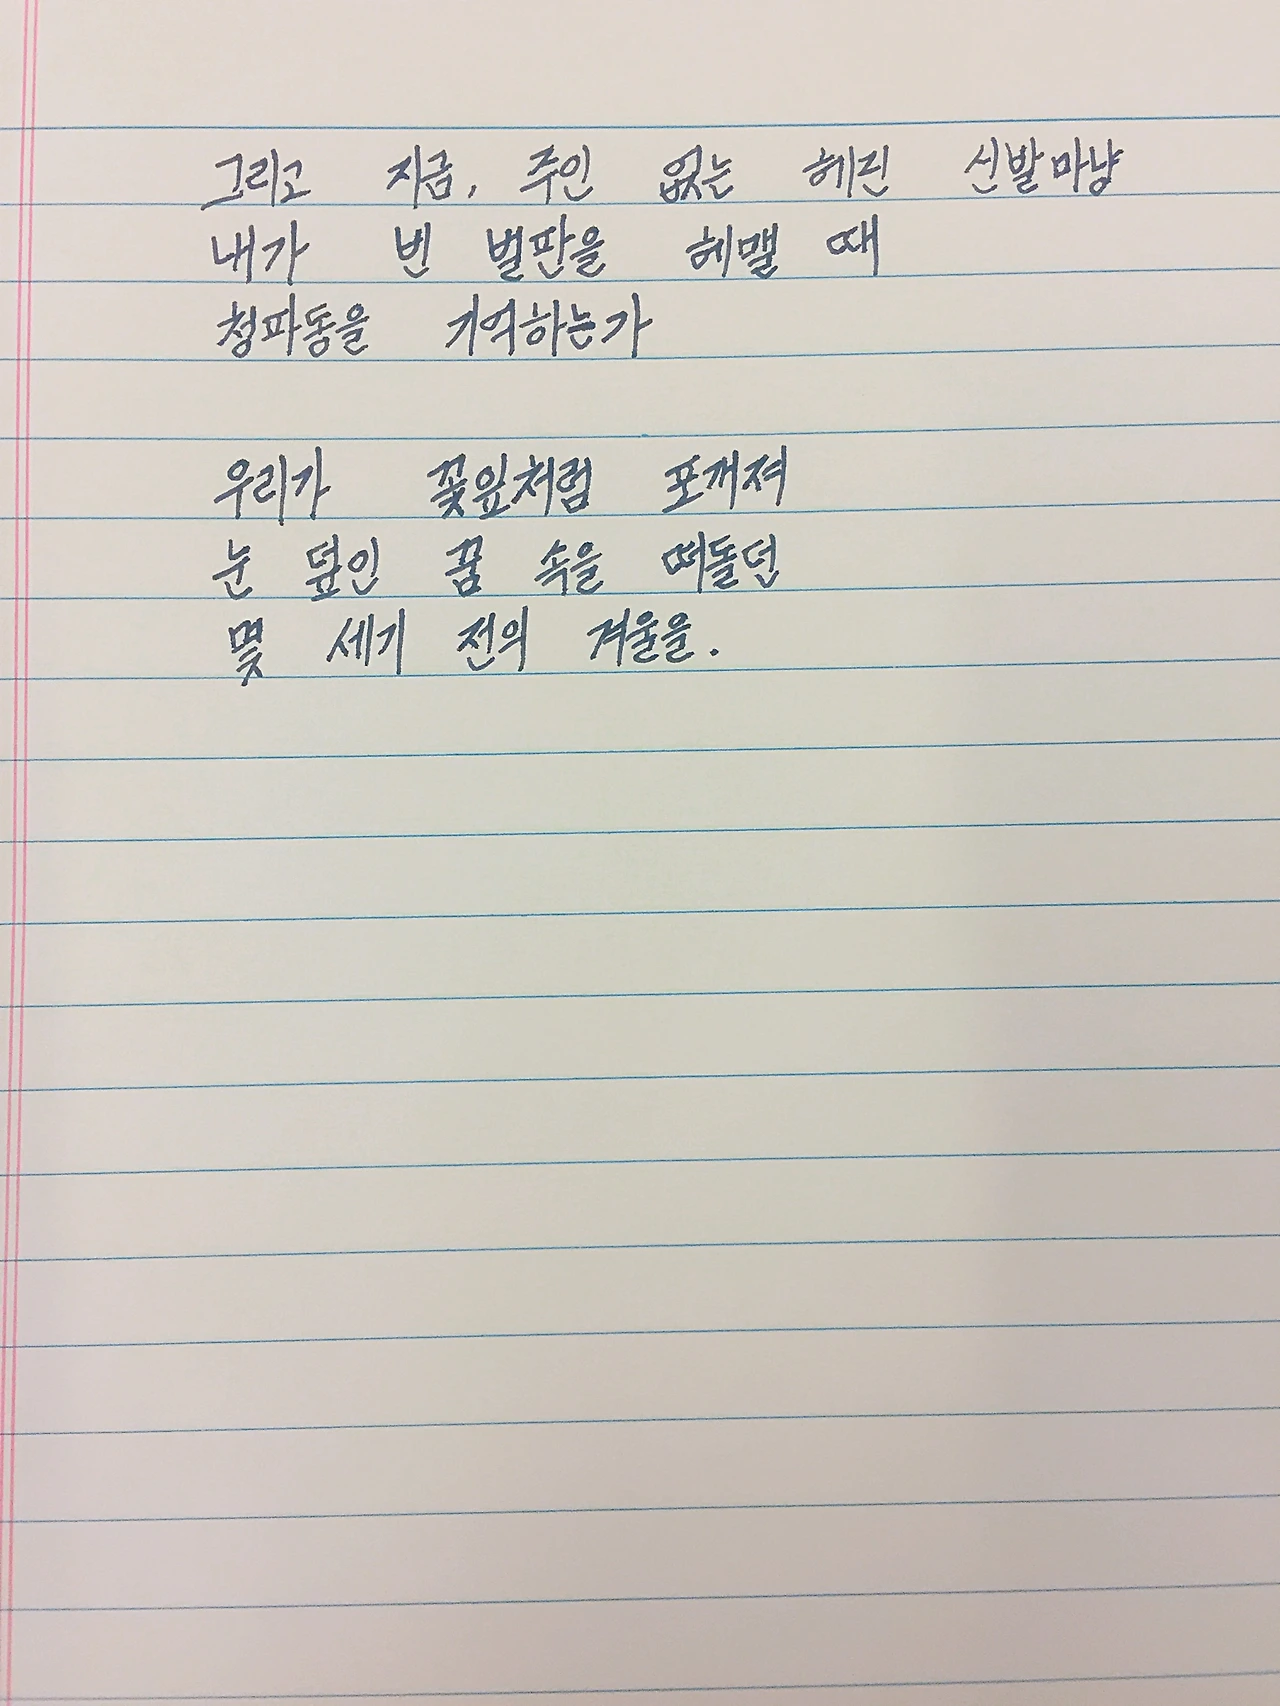 그리고 지금, 주인 없는 헤진 신발마냥
내가 빈 벌판을 헤맬 때
청파동을 기억하는가
우리가 꽃잎처럼 포개져
눈 덮인 꿈 속을 떠돌던
몇 세기 전의 겨울을.